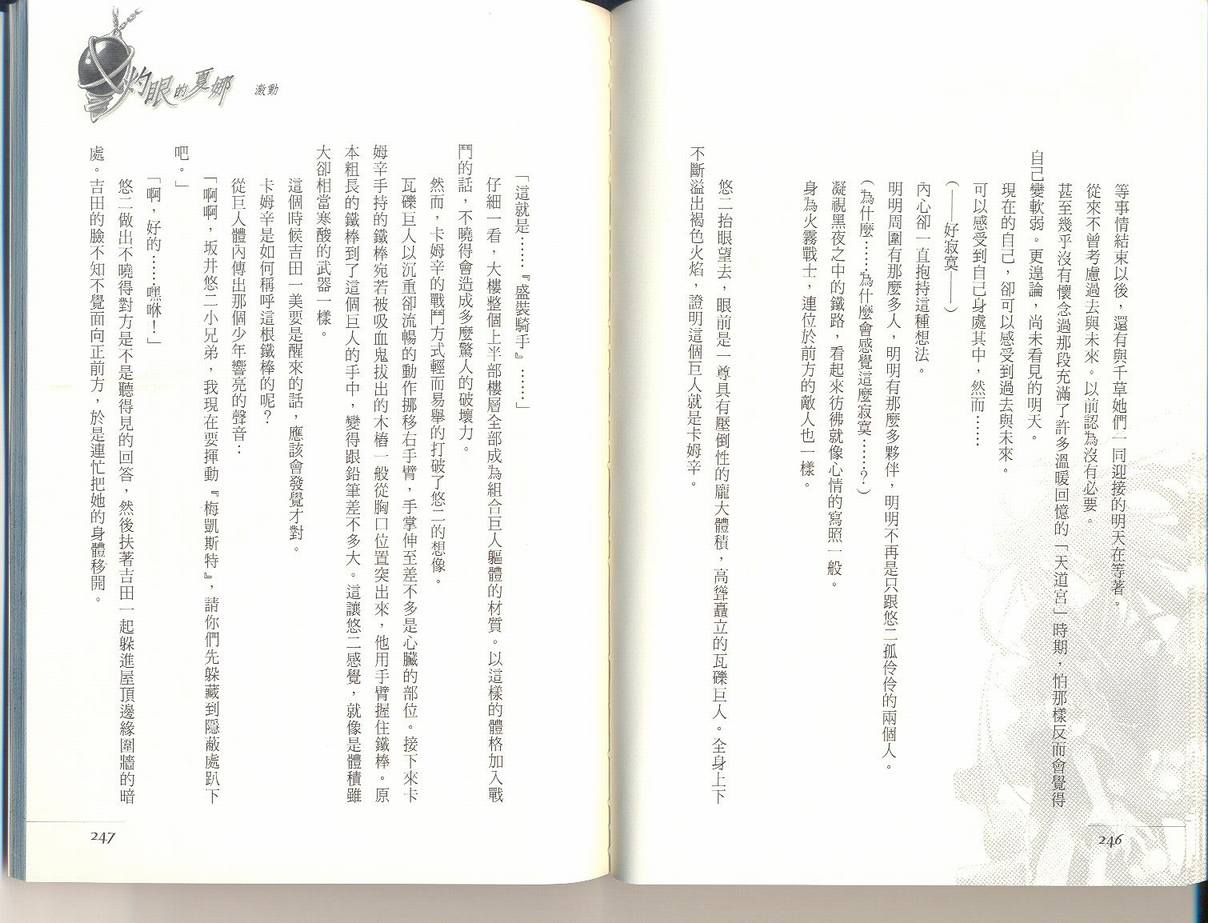 等事情結束以後，還有與千草她們一同迎接的明天在等著。
從來不曾考慮過去與未來。以前認為沒有必要。
甚至幾乎沒有懷念過那段充滿了許多溫暖回憶的「天道宮」時期，怕那樣反而會覺得
自己變軟弱。更遑論，尚未看見的明天。
現在的自己，卻可以感受到過去與未來。
可以感受到自己身處其中，然而……
（——好寂寞——）
內心卻一直抱持這種想法。
明明周圍有那麼多人，明明有那麼多夥伴，明明不再是只跟悠二孤伶伶的兩個人。
（為什麼……為什麼會感覺這麼寂寞……？）
凝視黑夜之中的鐵路，看起來彷彿就像心情的寫照一般。
身為火霧戰士，連位於前方的敵人也一樣。
悠二抬眼望去，眼前是一尊具有壓倒性的龐大體積，高聳矗立的瓦礫巨人。全身上下
不斷溢出褐色火焰，證明這個巨人就是卡姆辛。
246
灼眼的夏娜
激動
「這就是……『盛裝騎手』……」
仔細一看，大樓整個上半部樓層全部成為組合巨人軀體的材質。以這樣的體格加入戰
鬥的話，不曉得會造成多麼驚人的破壞力。
然而，卡姆辛的戰鬥方式輕而易舉的打破了悠二的想像。
瓦礫巨人以沉重卻流暢的動作挪移右手臂，手掌伸至差不多是心臟的部位。接下來卡
姆辛手持的鐵棒宛若被吸血鬼拔出的木樁一般從胸口位置突出來，他用手臂握住鐵棒。原
本粗長的鐵棒到了這個巨人的手中，變得跟鉛筆差不多大。這讓悠二感覺，就像是體積雖
大卻相當寒酸的武器一樣。
這個時候吉田一美要是醒來的話，應該會發覺才對。
卡姆辛是如何稱呼這根鐵棒的呢？
從巨人體內傳出那個少年響亮的聲音：
「啊啊，坂井悠二小兄弟，我現在要揮動『梅凱斯特』，請你們先躲藏到隱蔽處趴下
吧。」
「啊，好的……嘿咻！」
悠二做出不曉得對方是不是聽得見的回答，然後扶著吉田一起躲進屋頂邊緣圍牆的暗
處。吉田的臉不知不覺面向正前方，於是連忙把她的身體移開。
247